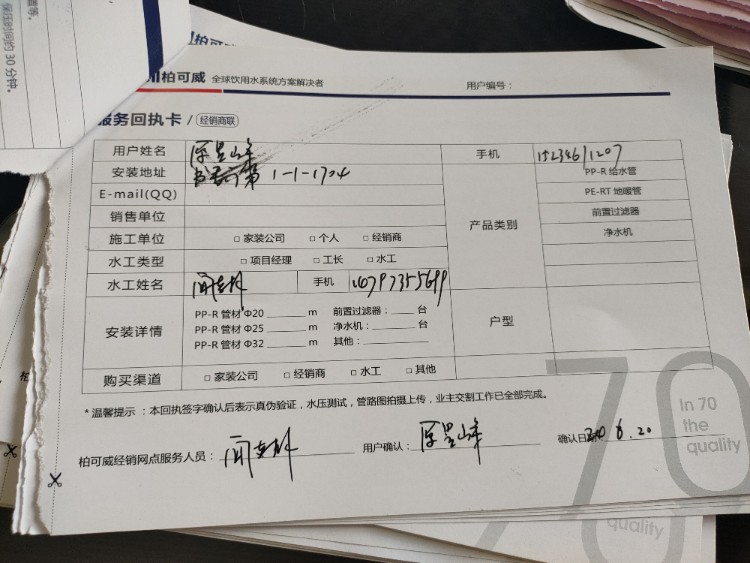 保压时间约30分钟。
柏可威 全球饮用水系统方案解决者 用户编号：
服务回执卡 / 经销商联
用户姓名 手机
安装地址 1-1-1704 PP-R 给水管
E-mail(QQ) PE-RT 地暖管
销售单位 产品类别 前置过滤器
施工单位 □ 家装公司 □ 个人 □ 经销商 净水机
水工类型 □ 项目经理 □ 工长 □ 水工
水工姓名 手机
安装详情 户型
PP-R 管材 Φ20 m 前置过滤器： 台
PP-R 管材 Φ25 m 净水机： 台
PP-R 管材 Φ32 m 其他：
购买渠道 □ 家装公司 □ 经销商 □ 水工 □ 其他
* 温馨提示：本回执签字确认后表示真伪验证，水压测试，管路图拍摄上传，业主交割工作已全部完成。
柏可威经销网点服务人员： 用户确认： 确认日期 6.20
70
In 70
the
quality
quality